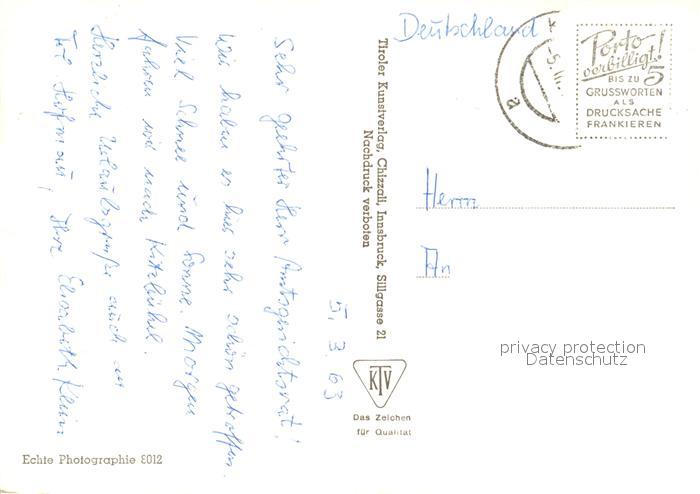 Deutschland
Porto
verbilligt!
BIS ZU 5
GRUSSWORTEN
ALS
DRUCKSACHE
FRANKIEREN
k
-5. III.
a
Herrn
An
privacy protection
Datenschutz
5. 3. 63
Sehr geehrter Herr Amtsgerichtsrat!
Wir haben es hier sehr schön getroffen.
Viel Schnee und Sonne. Morgen
fahren wir nach Kitzbühel.
Herzliche Urlaubsgrüße auch an
Ihre Elisabeth Klein
Tiroler Kunstverlag, Chizzali, Innsbruck, Sillgasse 21
Nachdruck verboten
KTV
Das Zeichen
für Qualität
Echte Photographie 8012